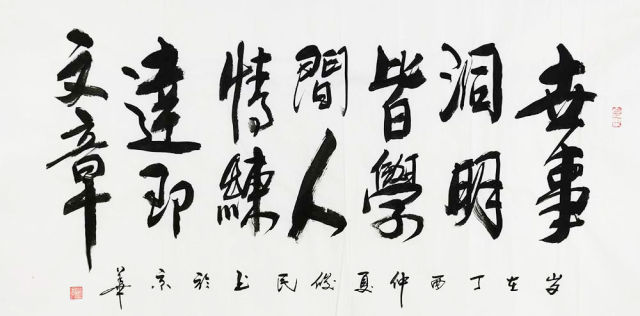 世事
洞明
皆學
間人
情練
達即
文章
岁在丁酉仲夏俊民书於京華